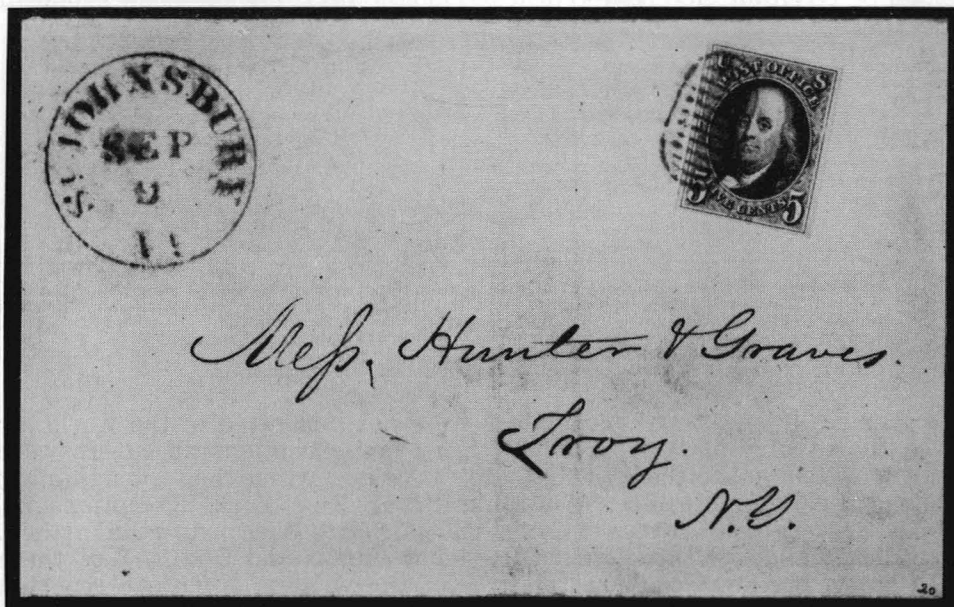 St. JOHNSBURY
SEP
9
POST OFFICE
5 FIVE CENTS 5
Mess. Hunter & Graves.
Troy.
N.Y.
20